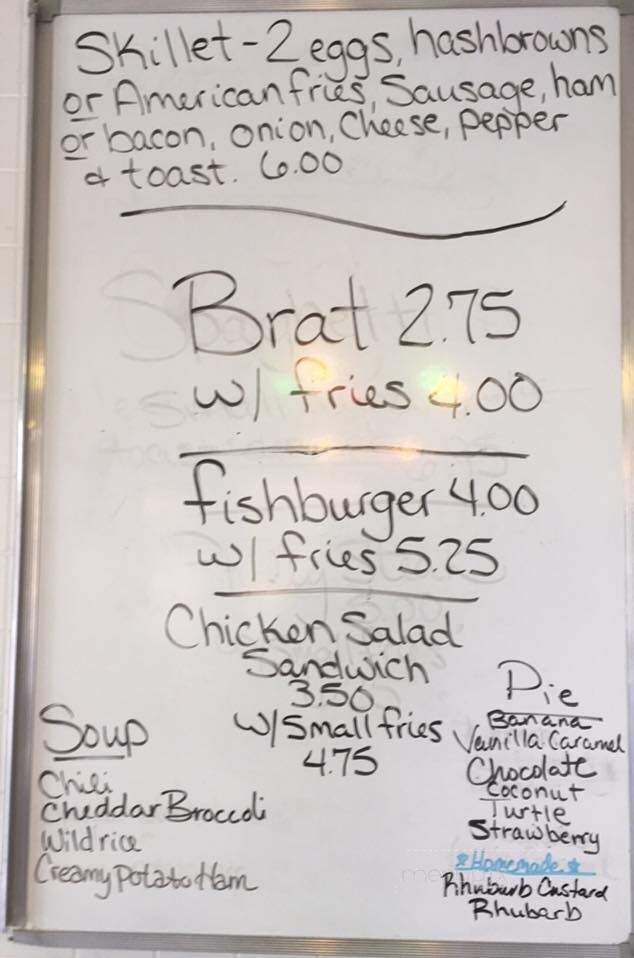 Skillet-2 eggs, hashbrowns
or American fries, Sausage, ham
or bacon, onion, Cheese, pepper
& toast. 6.00
Brat 2.75
w/ fries 4.00
fishburger 4.00
w/ fries 5.25
Chicken Salad
Sandwich
3.50
w/ Small fries
4.75
Soup
Chili
Cheddar Broccoli
Wild rice
Creamy Potato Ham
Pie
Banana
Vanilla Caramel
Chocolate
Coconut
Turtle
Strawberry
*Homemade*
Rhuburb Custard
Rhubarb